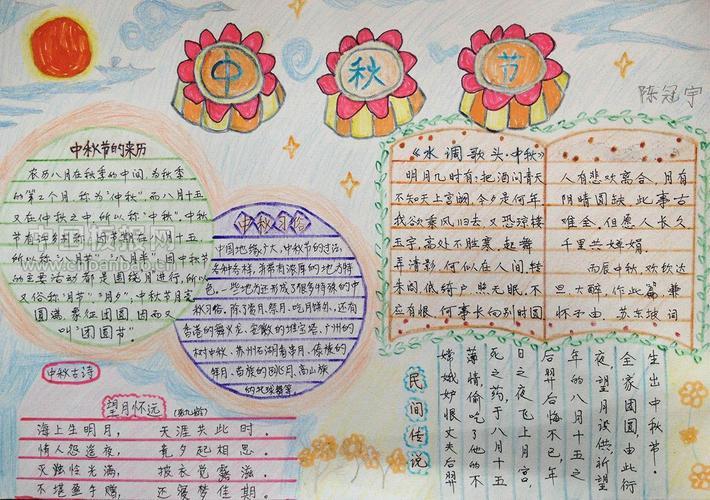 中秋节
陈冠宇
中秋节的来历
农历八月在秋季的中间,为秋季
的第2个月,称为"仲秋",而八月十五
又在仲秋之中,所以称"中秋",中秋
节有许多别称:因节期在八月十五,
所以称"八月节""八月半",因中秋节
的主要活动都是围绕月进行,所以
又俗称"月节""月夕",中秋节月亮
圆满,象征团圆,因而又
叫"团圆节"。
中秋习俗
中国地缘广大,中秋节的过法
各种各样,并带有浓厚的地方特
色。一些地方还形成了很多特殊的中
秋习俗,除了赏月、祭月、吃月饼外,还有
香港的舞火龙、安徽的堆宝塔、广州的
树中秋、苏州石湖看串月、傣族的
拜月、苗族的跳月、高山族
的托球舞等。
《水调歌头·中秋》
明月几时有?把酒问青天,
不知天上宫阙,今夕是何年
我欲乘风归去,又恐琼楼
玉宇,高处不胜寒,起舞
弄清影,何似在人间,转
朱阁,低绮户,照无眠,不
应有恨,何事长向别时圆
人有悲欢离合,月有
阴晴圆缺,此事古
难全,但愿人长久
千里共婵娟。
丙辰中秋,欢饮达
旦大醉,作此篇,兼
怀子由。苏东坡词
中秋古诗
望月怀远
海上生明月,天涯共此时。
情人怨遥夜,竟夕起相思。
灭烛怜光满,披衣觉露滋。
不堪盈手赠,还寝梦佳期。
民间传说
嫦娥妒恨丈夫后羿
薄情偷吃了他的不
死之药,于八月十五
日之夜飞上月宫,
后羿后悔不已,年
年的八月十五之
夜,望月设供,祈望
全家团圆,由此衍
生出中秋节。